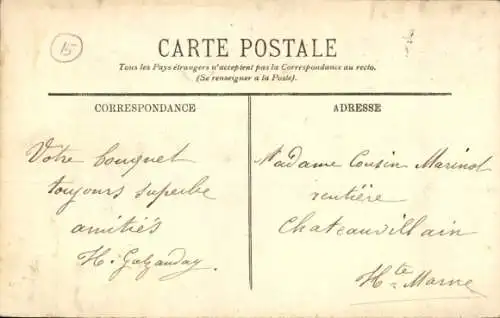 15
CARTE POSTALE
Tous les Pays étrangers n'acceptent pas la Correspondance au recto.
(Se renseigner a la Poste).
CORRESPONDANCE
Votre bouquet
toujours superbe
amitiés
H.
ADRESSE
Madame Cousin Marinot
rentière
Chateauvillain
Hte Marne